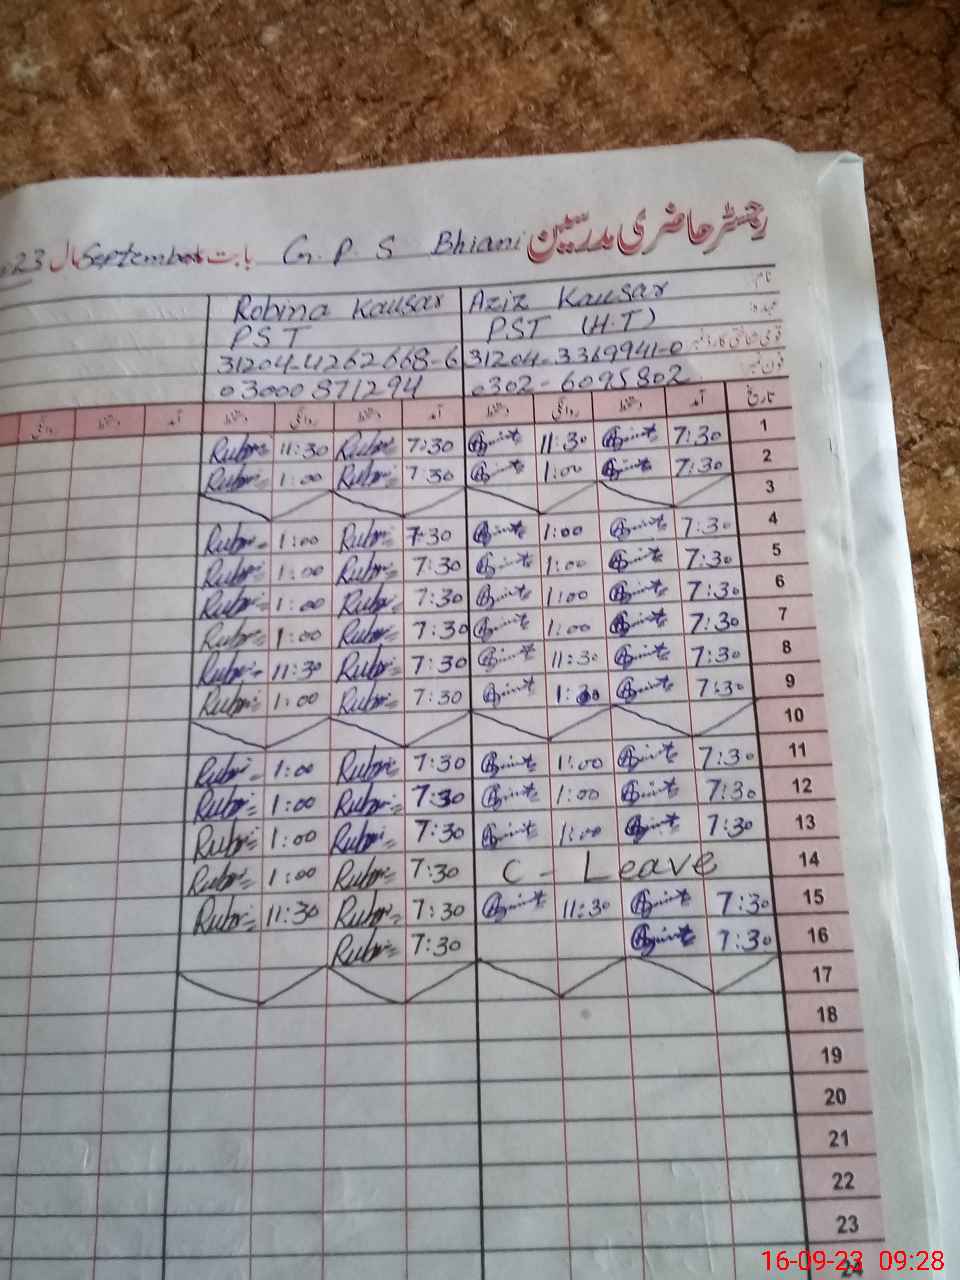 رجسٹر حاضری مدرسین G.P.S Bhiani بابت September سال 23
نام Aziz Kausar Robina Kausar
عہدہ PST (H.T) PST
قومی شناختی کارڈ نمبر 31204-3369941-0 31204-4262668-6
فون نمبر 0302-6095802 03000871294
تاریخ آمد دستخط روانگی دستخط آمد دستخط روانگی دستخط آمد دستخط روانگی
1 7:30 11:30 7:30 Rubi 11:30 Rubi
2 7:30 1:00 7:30 Rubi 1:00 Rubi
3
4 7:30 1:00 7:30 Rubi 1:00 Rubi
5 7:30 1:00 7:30 Rubi 1:00 Rubi
6 7:30 1:00 7:30 Rubi 1:00 Rubi
7 7:30 1:00 7:30 Rubi 1:00 Rubi
8 7:30 11:30 7:30 Rubi 11:30 Rubi
9 7:30 1:30 7:30 Rubi 1:00 Rubi
10
11 7:30 1:00 7:30 Rubi 1:00 Rubi
12 7:30 1:00 7:30 Rubi 1:00 Rubi
13 7:30 1:00 7:30 Rubi 1:00 Rubi
14 C - Leave 7:30 Rubi 1:00 Rubi
15 7:30 11:30 7:30 Rubi 11:30 Rubi
16 7:30 7:30 Rubi
17
18
19
20
21
22
23
24
16-09-23 09:28